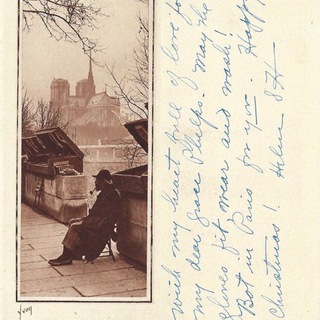 with my heart full of love for
my dear Grace Phelps. May the
gloves fit wear and wash!
Bot in Paris for you. Happy
Christmas! Helen
Yvon